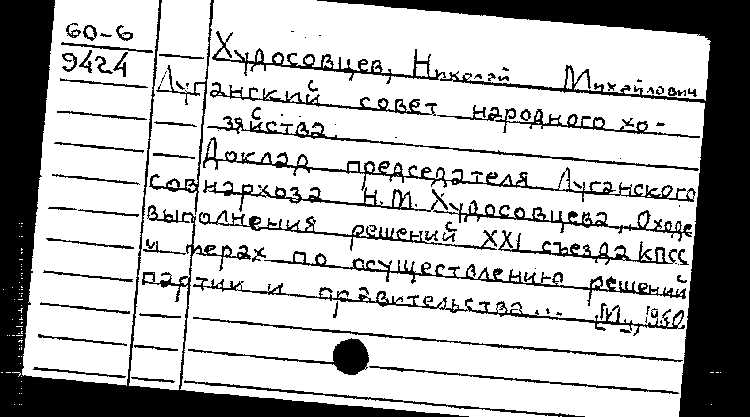 60-6
9424
Худосовцев, Николай Михайлович
Луганский совет народного хо-
зяйства.
Доклад председателя Луганского
совнархоза Н.М. Худосовцева „О ходе
выполнения решений XXI съезда КПСС
и мерах по осуществлению решений
партии и правительства... [М., 1960.